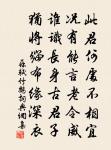 此君何處不相宜
況有能言老令威
誰識長身古君子
猶將緇布緣深衣
蘇軾竹鶴詞典網集